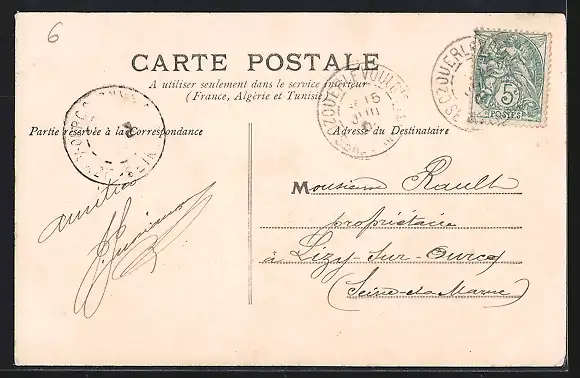 6
CARTE POSTALE
A utiliser seulement dans le service intérieur
(France, Algérie et Tunisie)
Partie réservée à la Correspondance
Adresse du Destinataire
amitiés
Monsieur Rault
propriétaire
à Lizy-sur-Ourcq
(Seine-et-Marne)
OUZOUER-LE-VOULG
15
OUZOUER
5c
POSTES